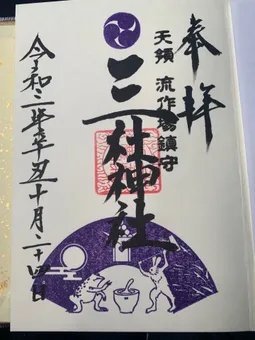 奉拝
天領 流作場鎮守
三社神社
令和三歳辛丑十月二十四日